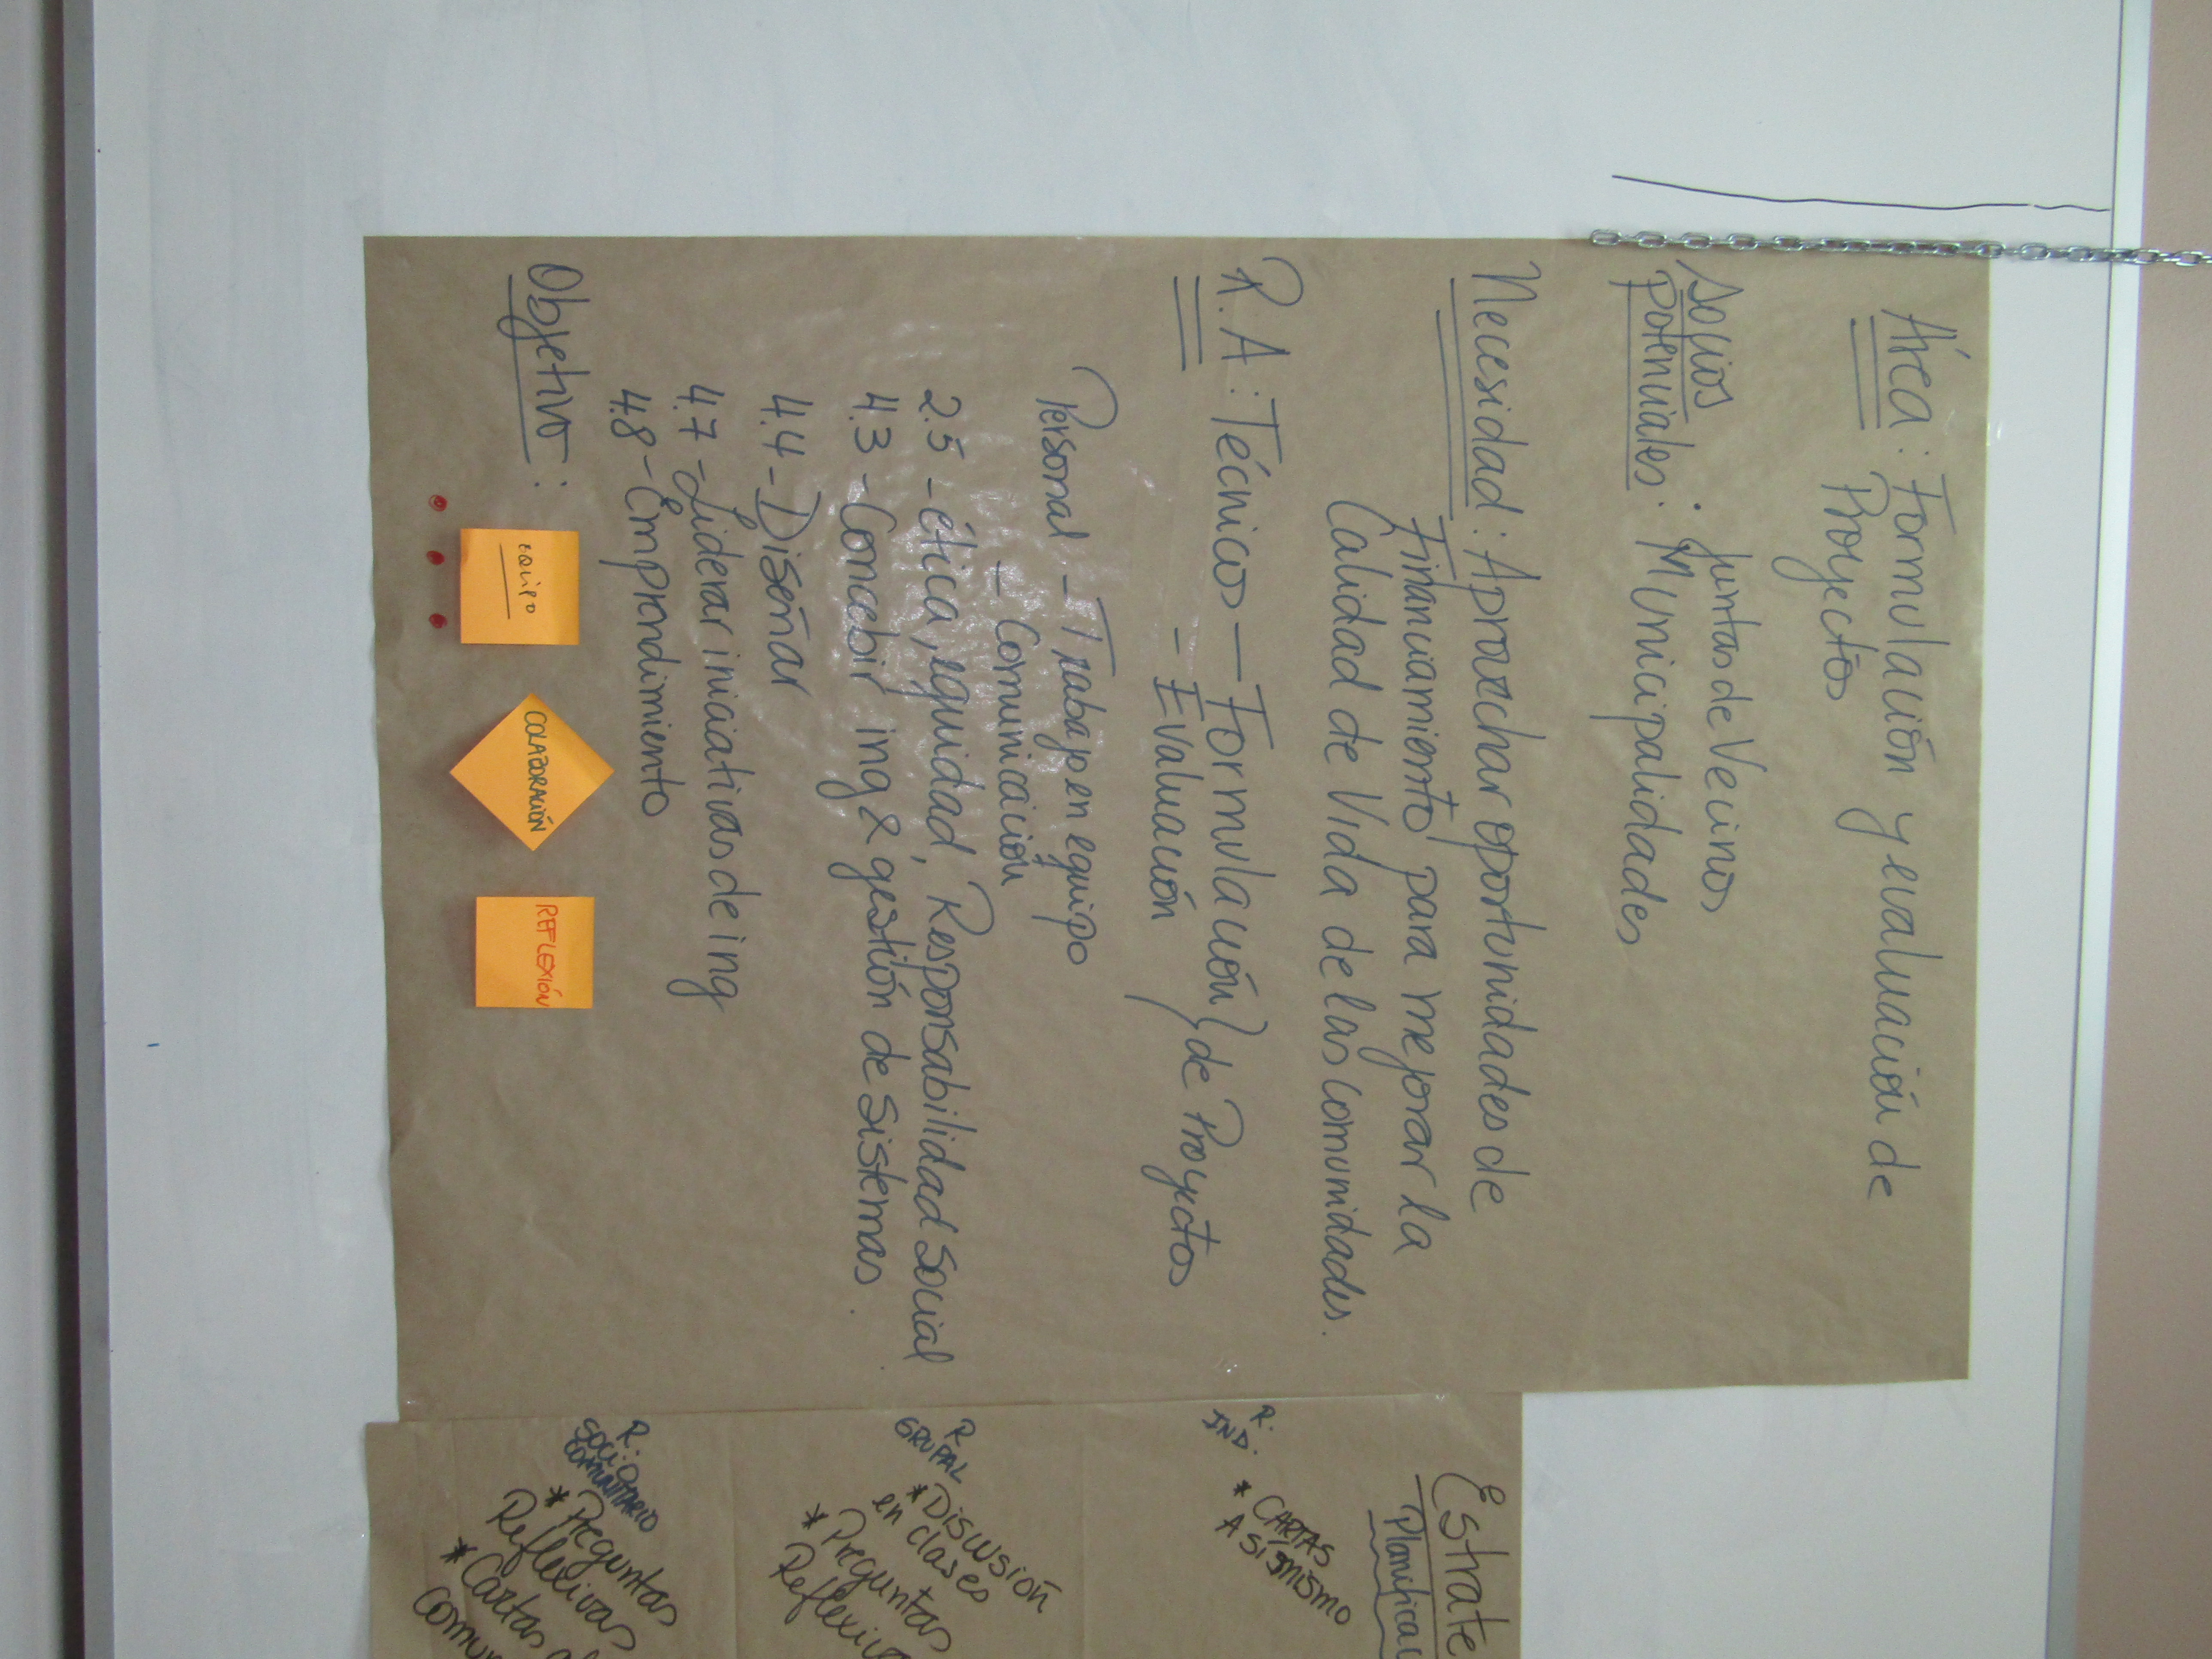 Área: Formulación y evaluación de
Proyectos
Socios
potenciales:
· Juntas de Vecinos
Municipalidades
Necesidad: Aprovechar oportunidades de
Financiamiento para mejorar la
Calidad de Vida de las comunidades.
R.A: Técnico — Formulación } de Proyectos
- Evaluación
Personal - Trabajo en equipo
- Comunicación
2.5 - ética, equidad, Responsabilidad Social
4.3 - Concebir ing & gestión de sistemas.
4.4 - Diseñar
4.7 - Liderar iniciativas de ing
4.8 - Emprendimiento
Objetivo:
EQUIPO
COLABORACIÓN
REFLEXIÓN
Estrate
Planificac
R.
IND.
* CARTAS
A SÍ MISMO
R
GRUPAL
* Discusión
en clases
* Preguntas
Reflexiva
R.
SOCIO
COMUNITARIO
* Preguntas
Reflexivas
* Cartas a
comun